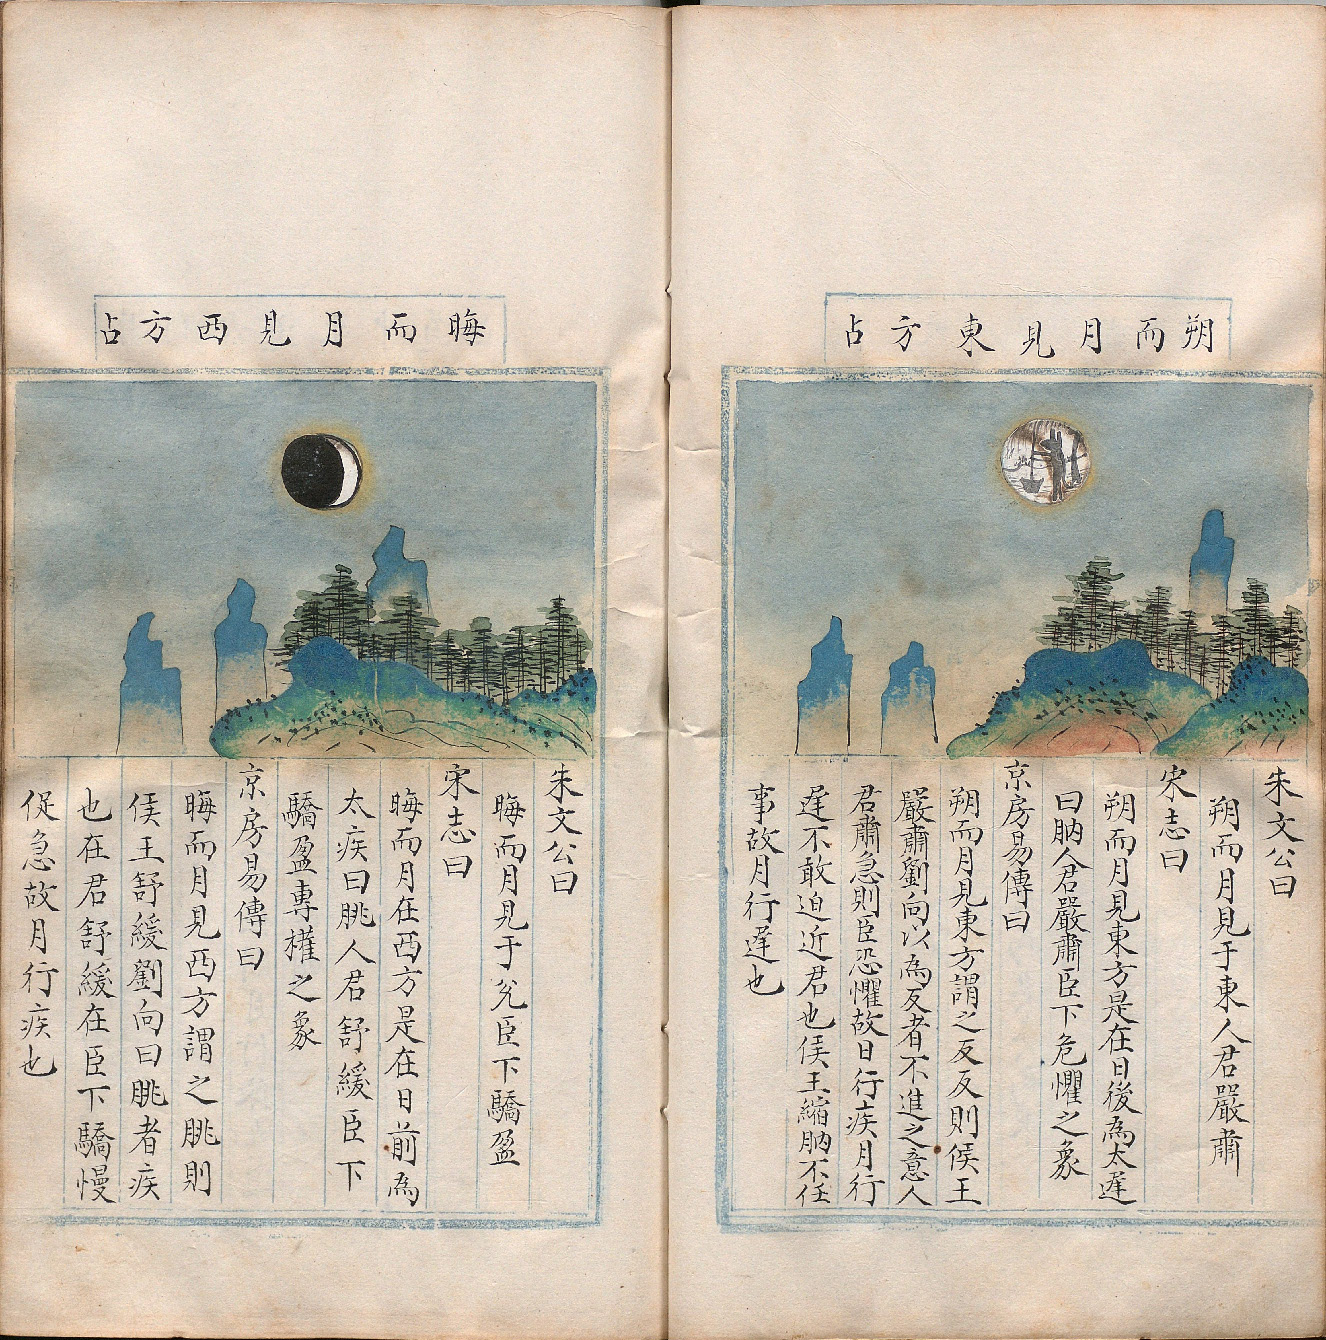 朔而月見東方占
朱文公曰
朔而月見于東人君嚴肅
宋志曰
朔而月見東方是在日後為太遲
曰朒人君嚴肅臣下危懼之象
京房易傳曰
朔而月見東方謂之仄仄則侯王
嚴肅劉向以為仄者不進之意人
君肅急則臣恐懼故日行疾月行
遲不敢迫近君也侯王縮朒不任
事故月行遲也
晦而月見西方占
朱文公曰
晦而月見于兊臣下驕盈
宋志曰
晦而月在西方是在日前為
太疾曰朓人君舒緩臣下
驕盈專權之象
京房易傳曰
晦而月見西方謂之朓則
侯王舒緩劉向曰朓者疾
也在君舒緩在臣下驕慢
促急故月行疾也